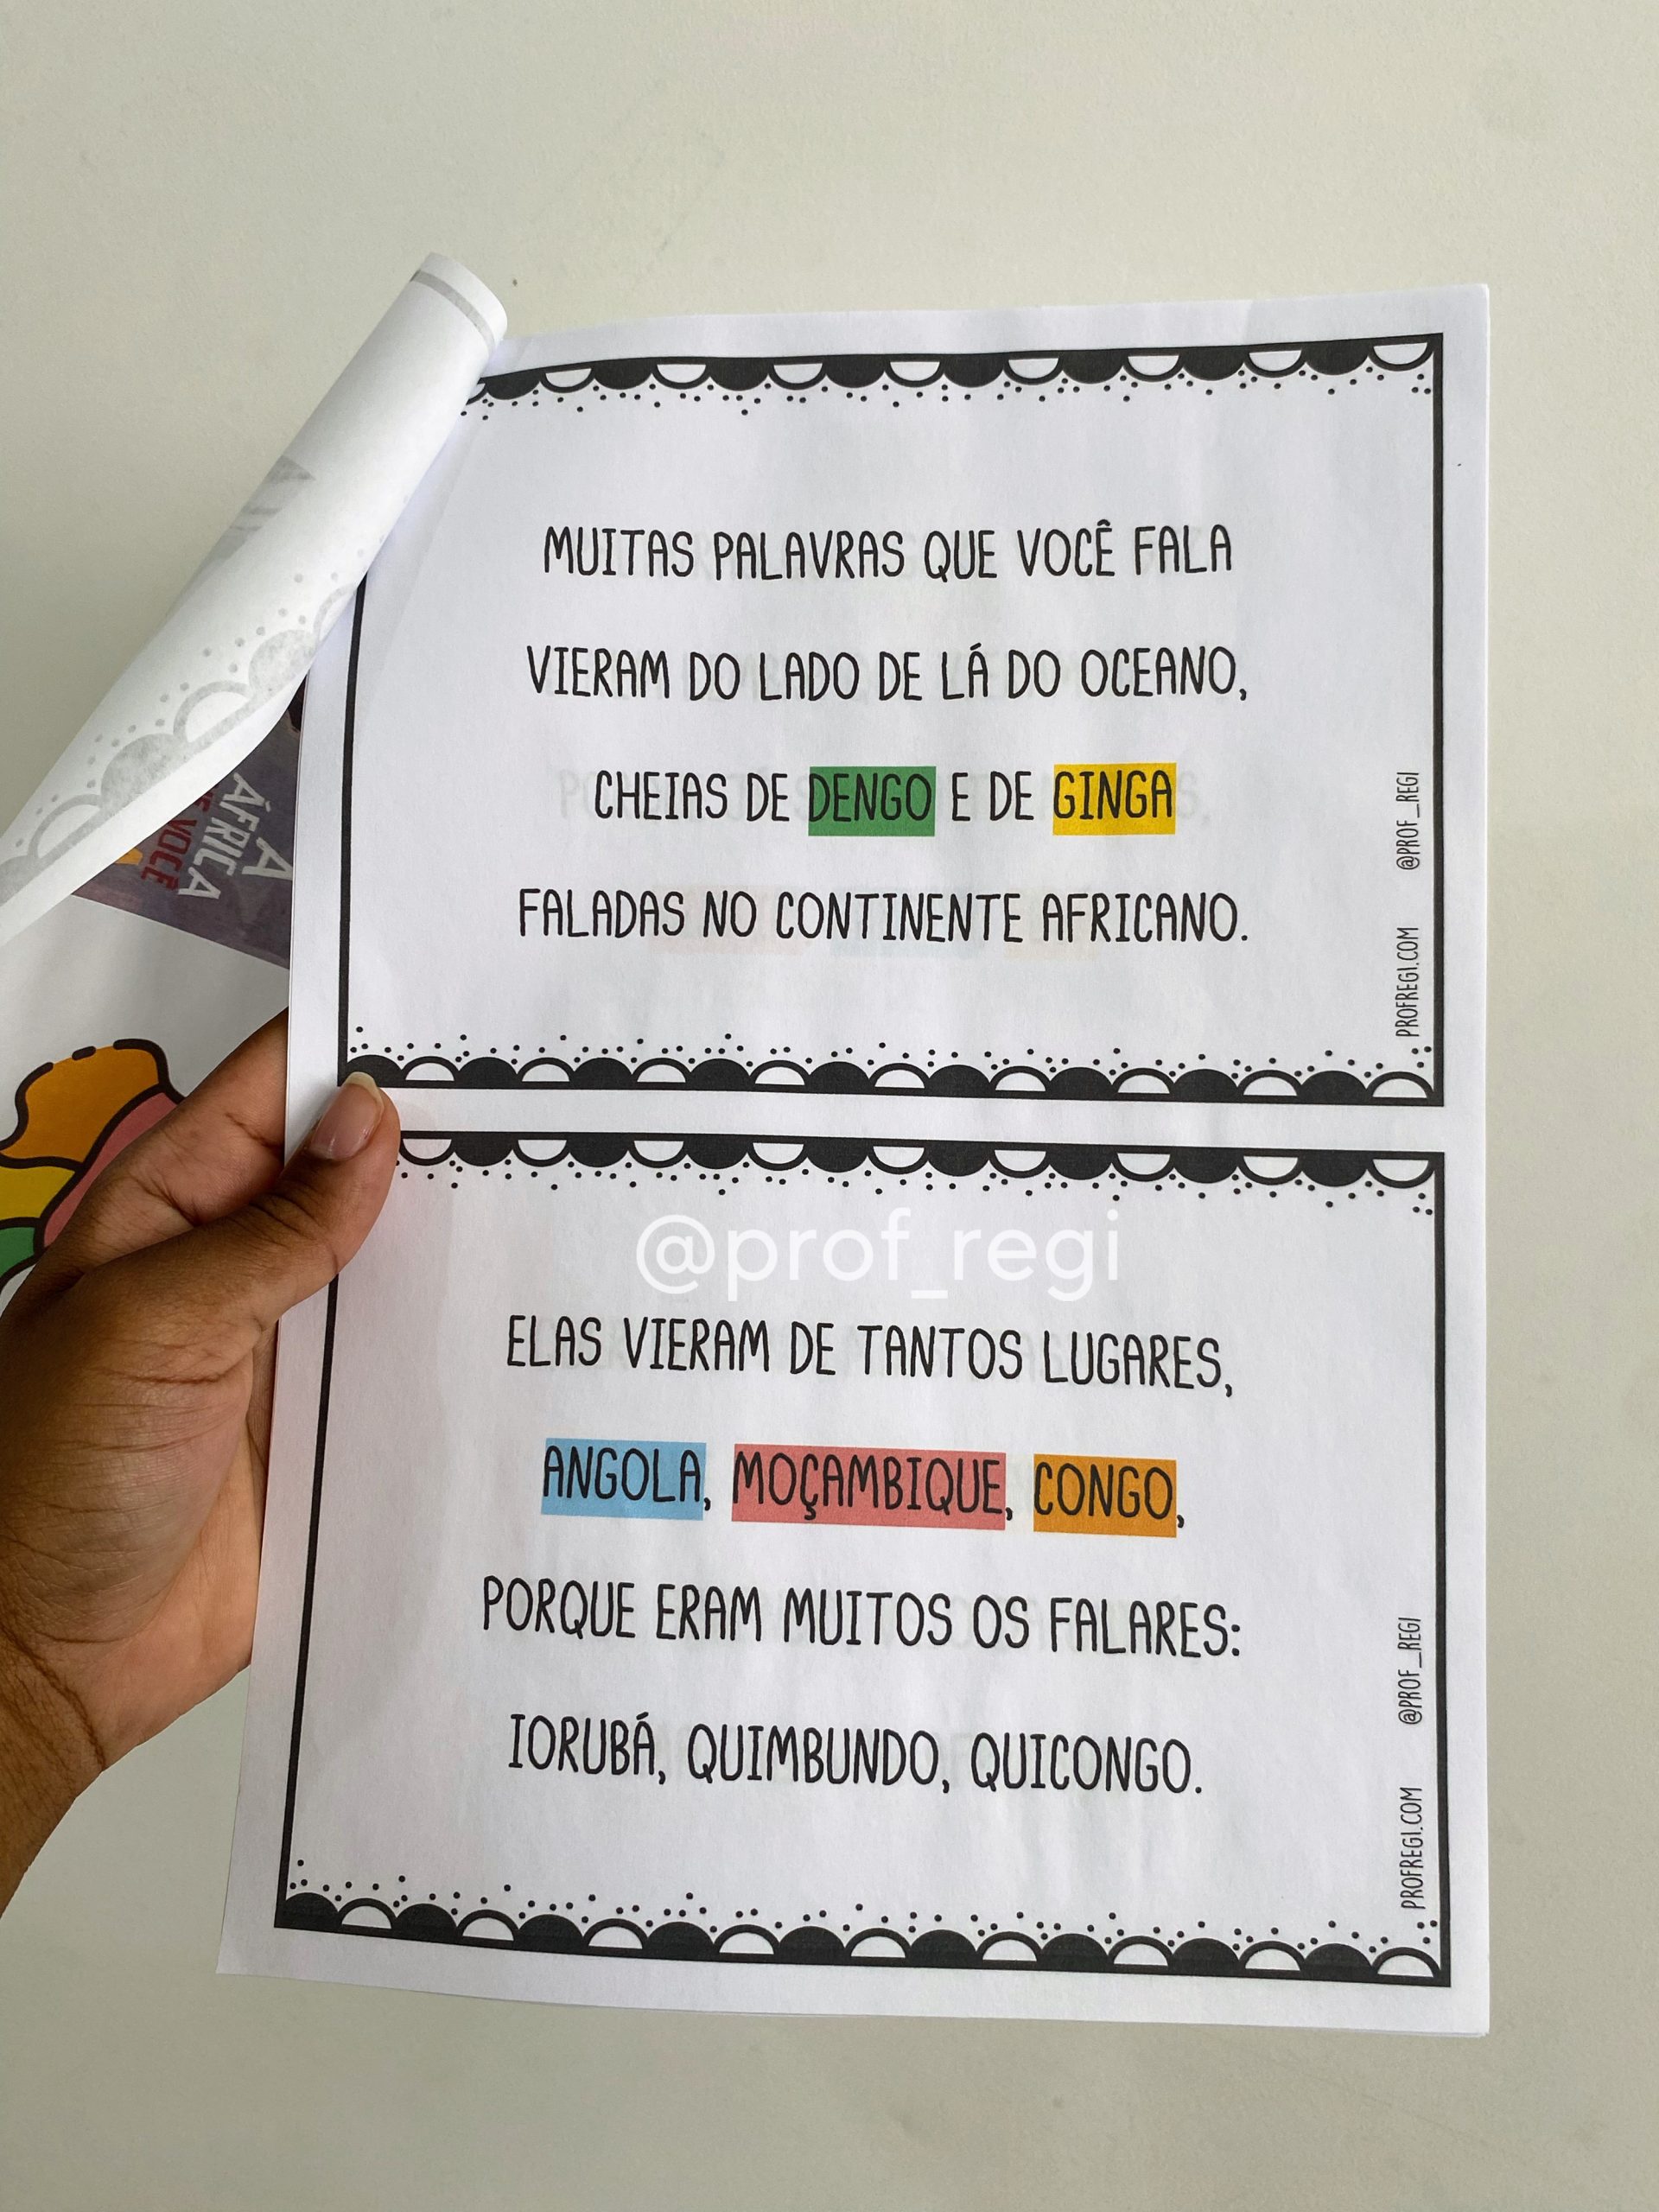 MUITAS PALAVRAS QUE VOCÊ FALA
VIERAM DO LADO DE LÁ DO OCEANO,
CHEIAS DE DENGO E DE GINGA
FALADAS NO CONTINENTE AFRICANO.
PROFREGI.COM @PROF_REGI
A
ÁFRICA
VOCÊ
@prof_regi
ELAS VIERAM DE TANTOS LUGARES,
ANGOLA, MOÇAMBIQUE, CONGO,
PORQUE ERAM MUITOS OS FALARES:
IORUBÁ, QUIMBUNDO, QUICONGO.
PROFREGI.COM @PROF_REGI